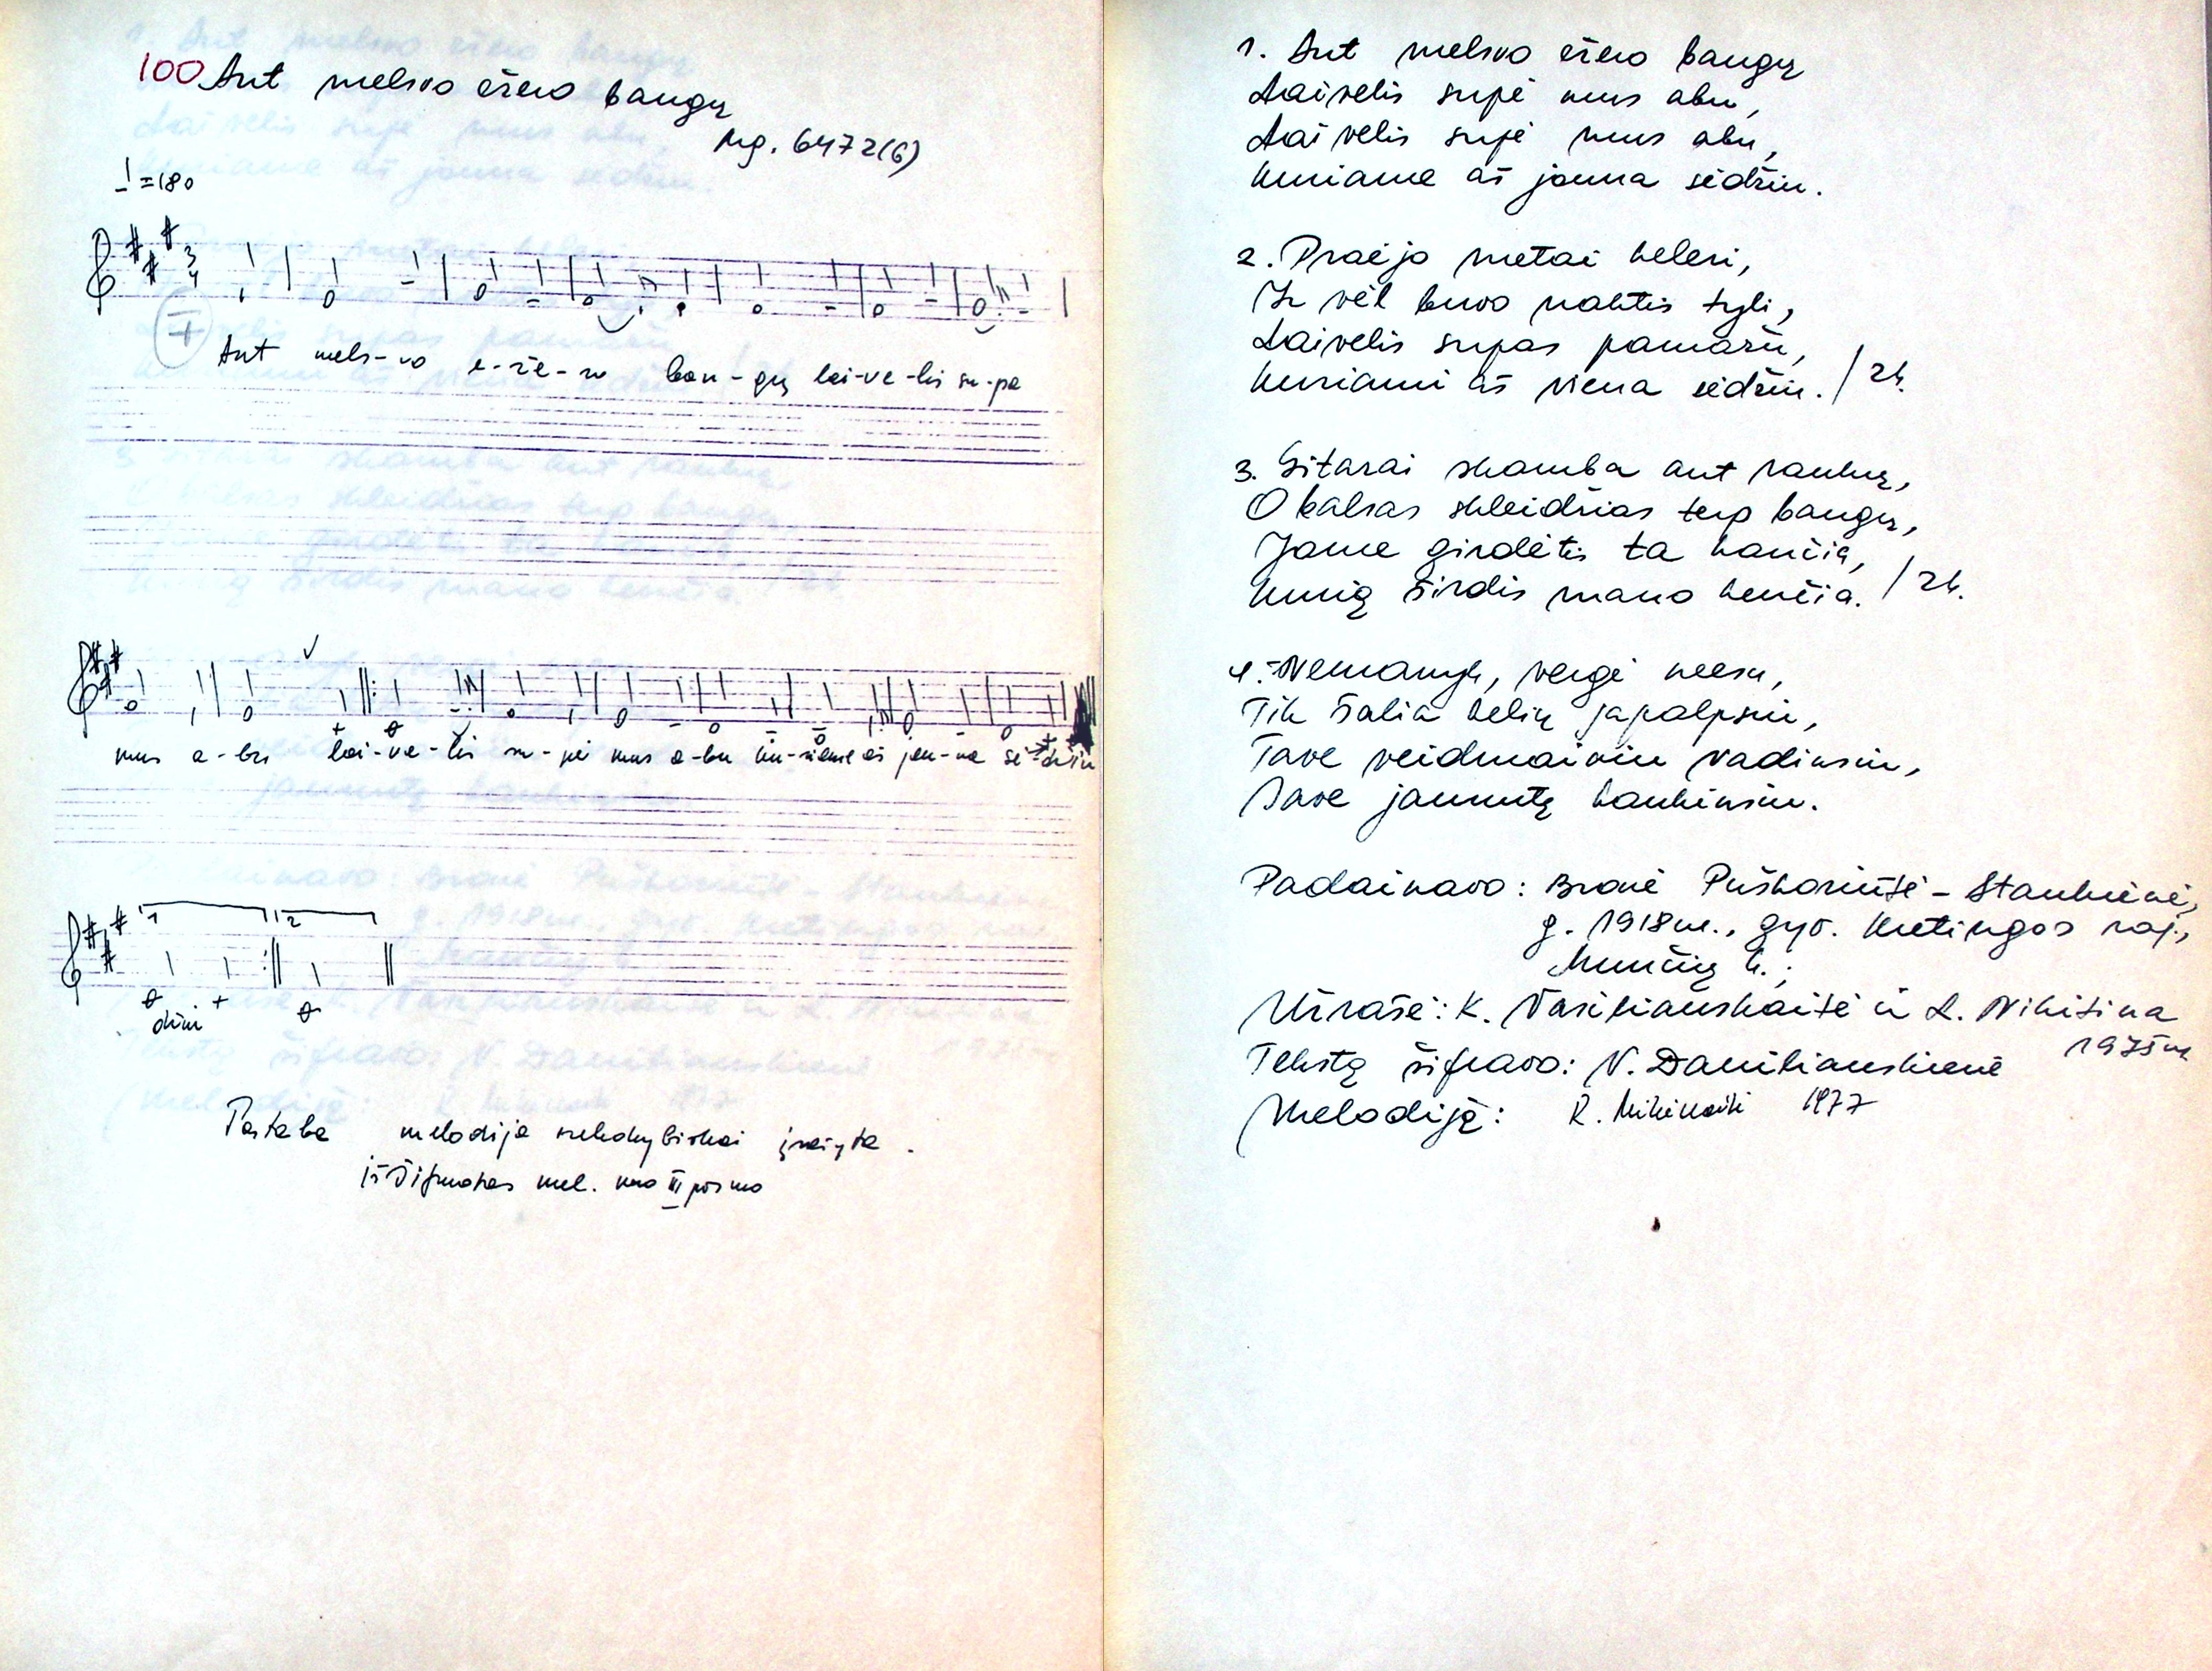 100 Ant melsvo ežero bangų
Mg. 6472(6)
♩=180
3
4
Ant mels-vo e-že-ro ban-gų lai-ve-lis su-pa
mus a-bu lai-ve-lis su-pė mus a-bu ku-riame aš jau-na sė-džiu
1 2
džiu
Pastaba melodija nekokybiškai įrašyta.
iššifruotas mel. nuo III posmo
1. Ant melsvo ežero bangų
Laivelis supė mus abu,
Laivelis supė mus abu,
Kuriame aš jauna sėdžiu.
2. Praėjo metai keleri,
Ir vėl buvo naktis tyli,
Laivelis supas pamažu,
Kuriami aš viena sėdžiu. / 2k.
3. Gitarai skamba ant rankų,
O balsas skleidžias terp bangų,
Jame girdėtis ta kančia,
Kurią širdis mano kenčia. / 2k.
4. - Nemanyk, vergė neesu,
Tik šalia kelių japalpsiu,
Tave veidmainiu vadinsiu,
Save jaunutę kankinsiu.
Padainavo: Bronė Puškoriūtė - Staukienė,
g. 1918m., gyv. Kretingos raj.,
k.;
Užrašė: K. Vasiliauskaitė ir L. Nikitina
1975m
Tekstą šifravo: N. Daniliauskienė
Melodiją: R. 1977